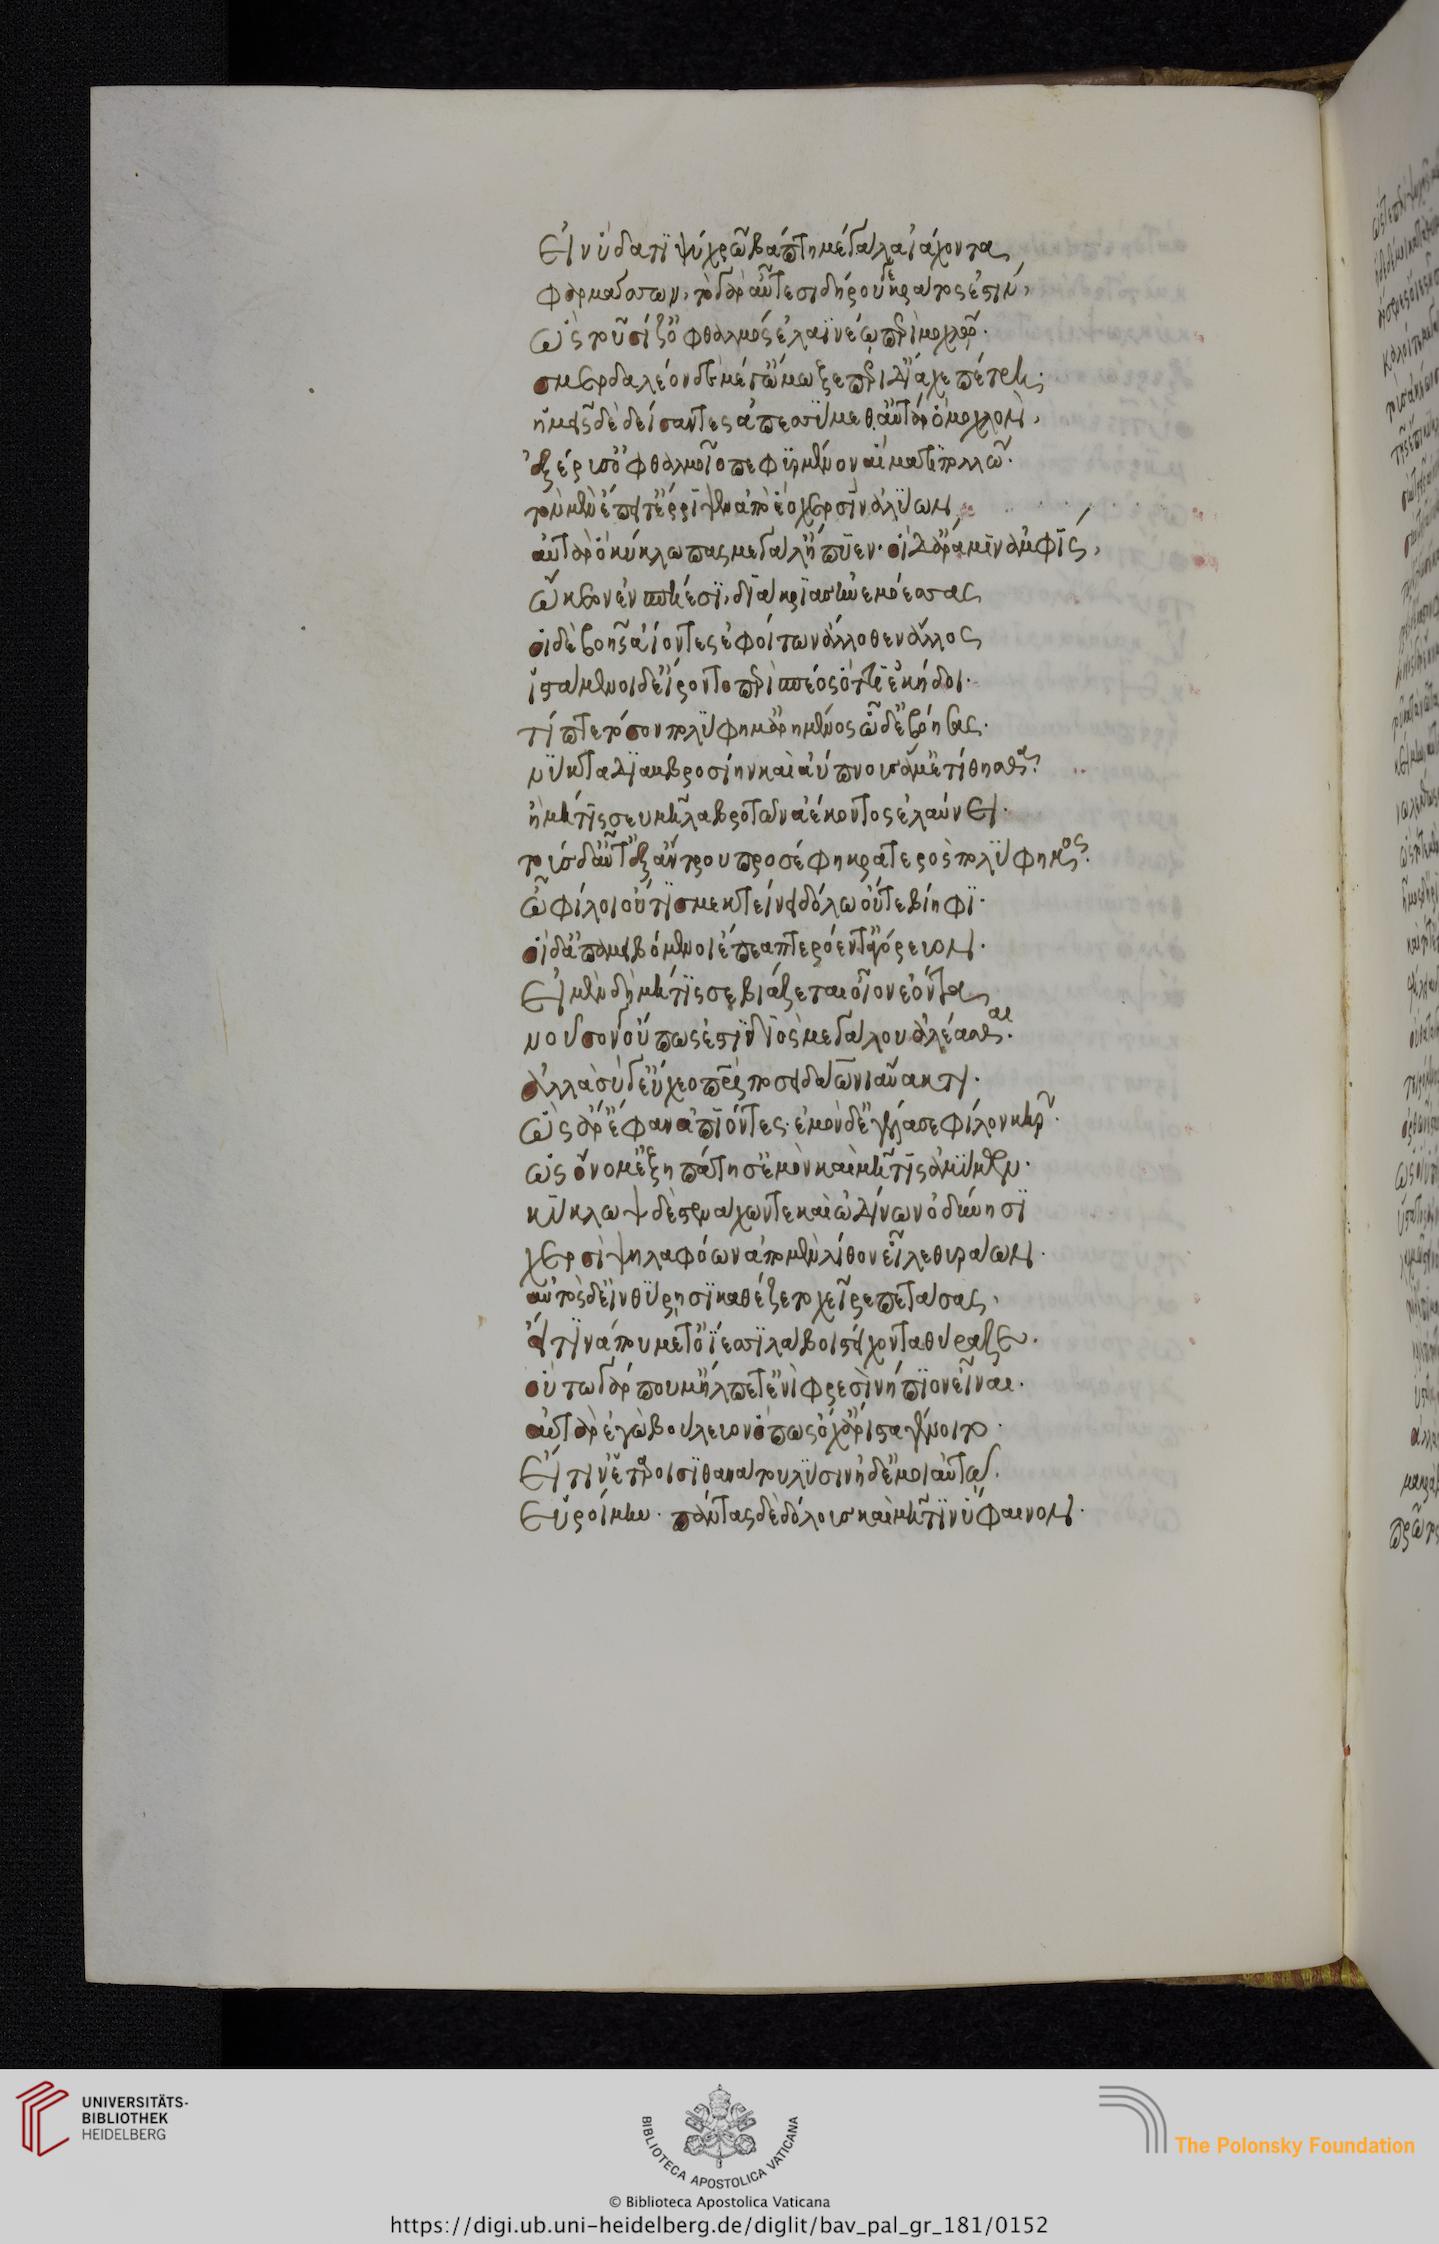 εἰν ὕδατι ψυχρῶ βάπτη μεγάλα ἰάχοντα
φαρμάσσων· τὸ γὰρ αὖτε σιδήρου δὲ κράτος ἐστίν·
ὣς τοῦ σίζ' ὀφθαλμὸς ἐλαϊνέω περὶ μοχλῶ·
σμερδαλέον δὲ μέγ' ὤμωξε περὶ δ' ἴαχε πέτρη·
ἡμεῖς δὲ δείσαντες ἀπεσσύμεθ' αὐτὰρ ὁ μοχλὸν
ἐξέρυσ' ὀφθαλμοῖο πεφυρμένον αἵματι πολλῶ·
τὸν μὲν ἔπειτ' ἔρριψεν ἀπὸ ἕο χερσὶν ἀλύων
αὐτὰρ ὁ κύκλωπας μεγάλ' ἤπυεν· οἵ ῥά μιν ἀμφὶς,
ὤκεον ἐν σπέεσι, δι' ἄκριας ἠνεμοέσσας
οἱ δὲ βοῆς ἀΐοντες ἐφοίτων ἄλλοθεν ἄλλος
ἱστάμενοι δ' εἴροντο περὶ σπέος ὅττι ἑ κήδοι·
τίπτε τόσον πολύφημ' ἀρημένος ὧδ' ἐβόησας·
νύκτα δι' ἀμβροσίην καὶ ἀΰπνους ἄμμε τίθησθα·
ἢ μή τίς σευ μῆλα βροτῶν ἀέκοντος ἐλαύνει·
τοὺς δ' αὖτ' ἐξ ἄντρου προσέφη κρατερὸς πολύφημος·
ὦ φίλοι οὖτίς με κτείνει δόλω οὔτε βίηφι·
οἱ δ' ἀπαμειβόμενοι ἔπεα πτερόεντ' ἀγόρευον·
εἰ μὲν δὴ μή τίς σε βιάζεται οἷον ἐόντα
νοῦσον γ' οὔπως ἐστὶ διὸς μεγάλου ἀλέασθαι·
ἀλλὰ σύ γ' εὔχεο πατρὶ ποσειδάωνι ἄνακτι·
ὣς ἄρ' ἔφαν ἀπιόντες· ἐμὸν δ' ἐγέλασε φίλον κῆρ·
ὡς ὄνομ' ἐξηπάτησ' ἐμὸν καὶ μῆτις ἀμύμων·
κύκλωψ δὲ στενάχων τε καὶ ὠδίνων ὀδύνησι
χερσὶ ψηλαφόων ἀπὸ μὲν λίθον εἷλε θυράων·
αὐτὸς δ' εἰν θύρησι καθέζετο χεῖρε πετάσας·
εἴ τινά που μετ' ὀΐεσσι λάβοι στείχοντα θύραζε·
οὕτω γάρ που μ' ἤλπετ' ἐνὶ φρεσὶ νήπιον εἶναι·
αὐτὰρ ἐγὼ βούλευον ὅπως ὄχ' ἄριστα γένοιτο·
εἴ τιν' ἑτάροισι θανάτου λύσιν ἠδ' ἐμοὶ αὐτῶ
εὑροίμην· πάντας δὲ δόλους καὶ μῆτιν ὕφαινον·
UNIVERSITÄTS-
BIBLIOTHEK
HEIDELBERG
BIBLIOTECA APOSTOLICA VATICANA
The Polonsky Foundation
© Biblioteca Apostolica Vaticana
https://digi.ub.uni-heidelberg.de/diglit/bav_pal_gr_181/0152